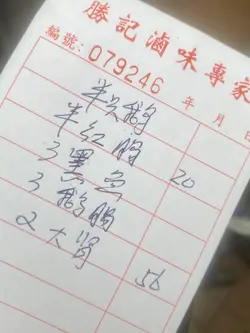 勝記滷味專家
編號: 079246 年 月 日
半只鵝
半紅腸
3墨魚 20
3鵝腸
2大腎 56